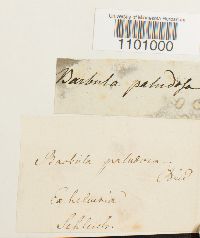 University of Minnesota Herbarium
1101000
Barbula paludosa
Barbula paludosa
Ex helvetia
Schleich.